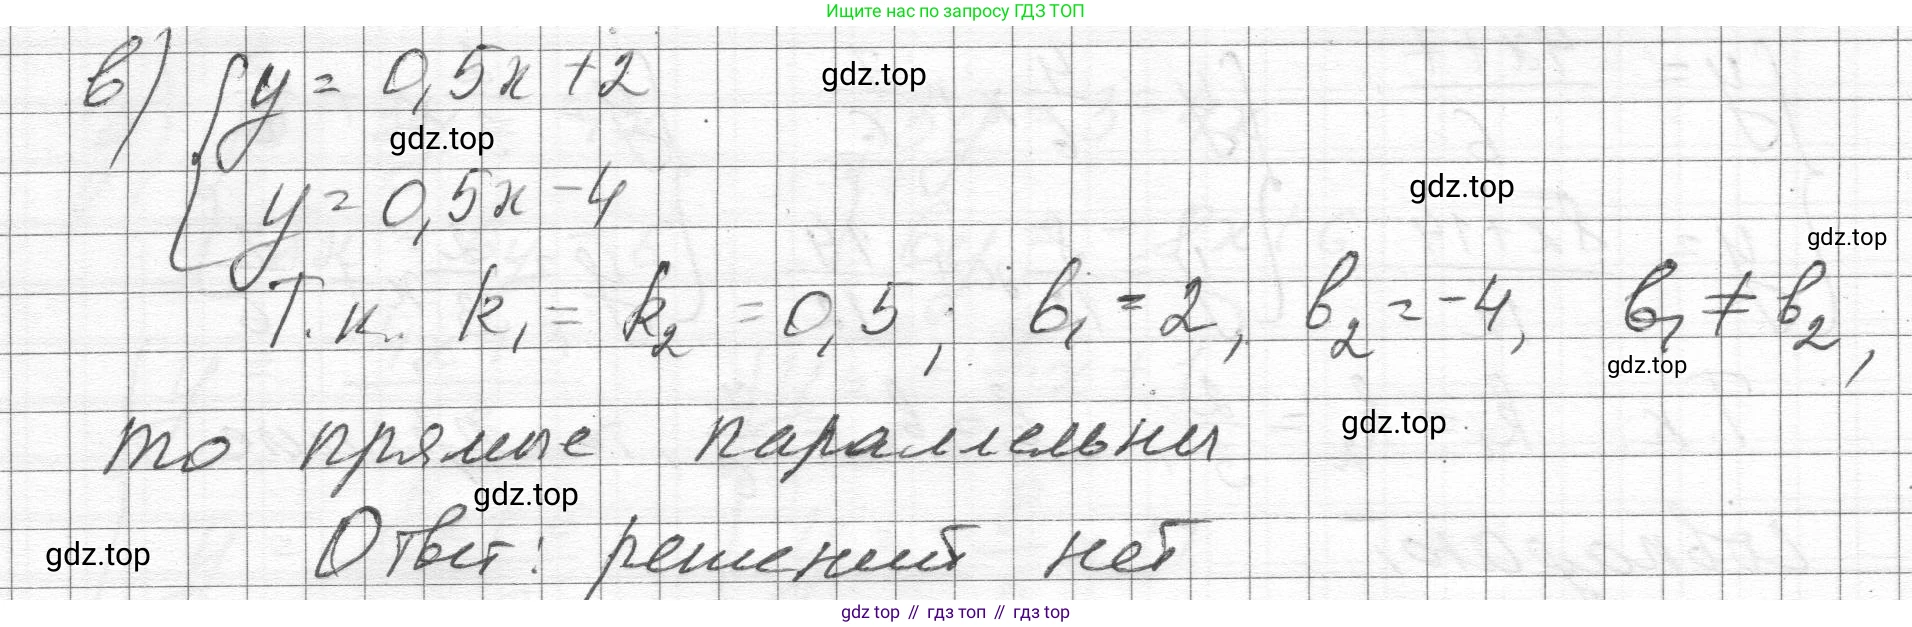 Ищите нас по запросу ГДЗ ТОП
в) { y = 0,5x + 2
gdz.top
gdz.top
y = 0,5x - 4
gdz.top
gdz.top
Т.к. k₁ = k₂ = 0,5; b₁ = 2, b₂ = -4, b₁ ≠ b₂,
gdz.top
то прямые параллельны
gdz.top
gdz.top
Ответ: решений нет
gdz.top
gdz top // гдз топ // гдз top